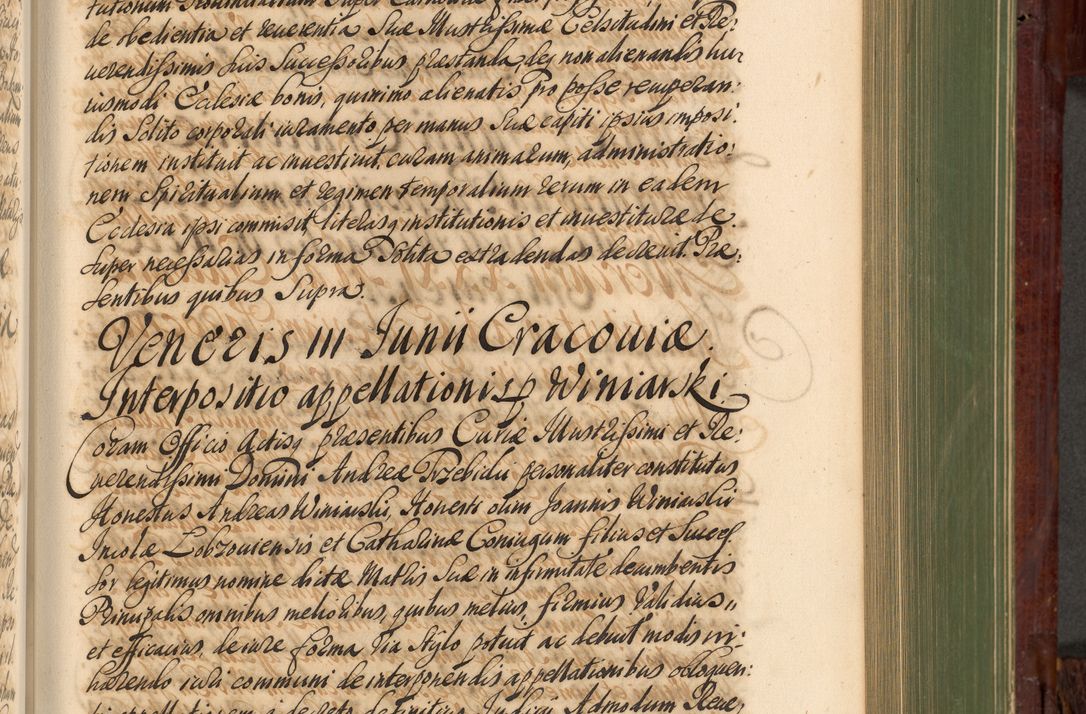 de obedientia et reuerentia Suæ Illustrissimæ Celsitudini et Re:
uerendissimis Suis Successoribus præstanda, deq non alienandis hu:
iusmodi Ecclesiæ bonis, quinimo alienatis pro posse recuperan:
dis Solito corporali iuramento, per manus Suæ capiti ipsius imposi:
tionem instituit ac inuestiuit, curam animarum, administratio:
nem Spiritualium et regimen temporalium rerum in eadem
Ecclesia ipsi commisit, literasq institutionis et inuestituræ de
super necessarias in forma Solita extradendas decreuit. Præ:
sentibus quibus Supra.
Veneris III Junii Cracouiæ.
Interpositio appellationis p Winiarski.
Coram Officio Actisq præsentibus Curiæ Illustrissimi et Re:
uerendissimi Domini Andreæ Trzebicki personaliter constitutus
Honestus Andreas Winiarski, Honesti olim Joannis Winiarski
Incolæ Lobzouiensis et Catharinæ Coniugum filius et Succes
sor legitimus nomine dictæ Matris Suæ in infirmitate decumbentis
Principalis omnibus melioribus, quibus melius, firmius validius,,
et efficacius, de iure forma via Stylo potuit ac debuit modis in:
hærendo iuri communi de interponendis appellationibus obloquen:
ti appellationem a decreto definitiuo Judici Admodum Reue,